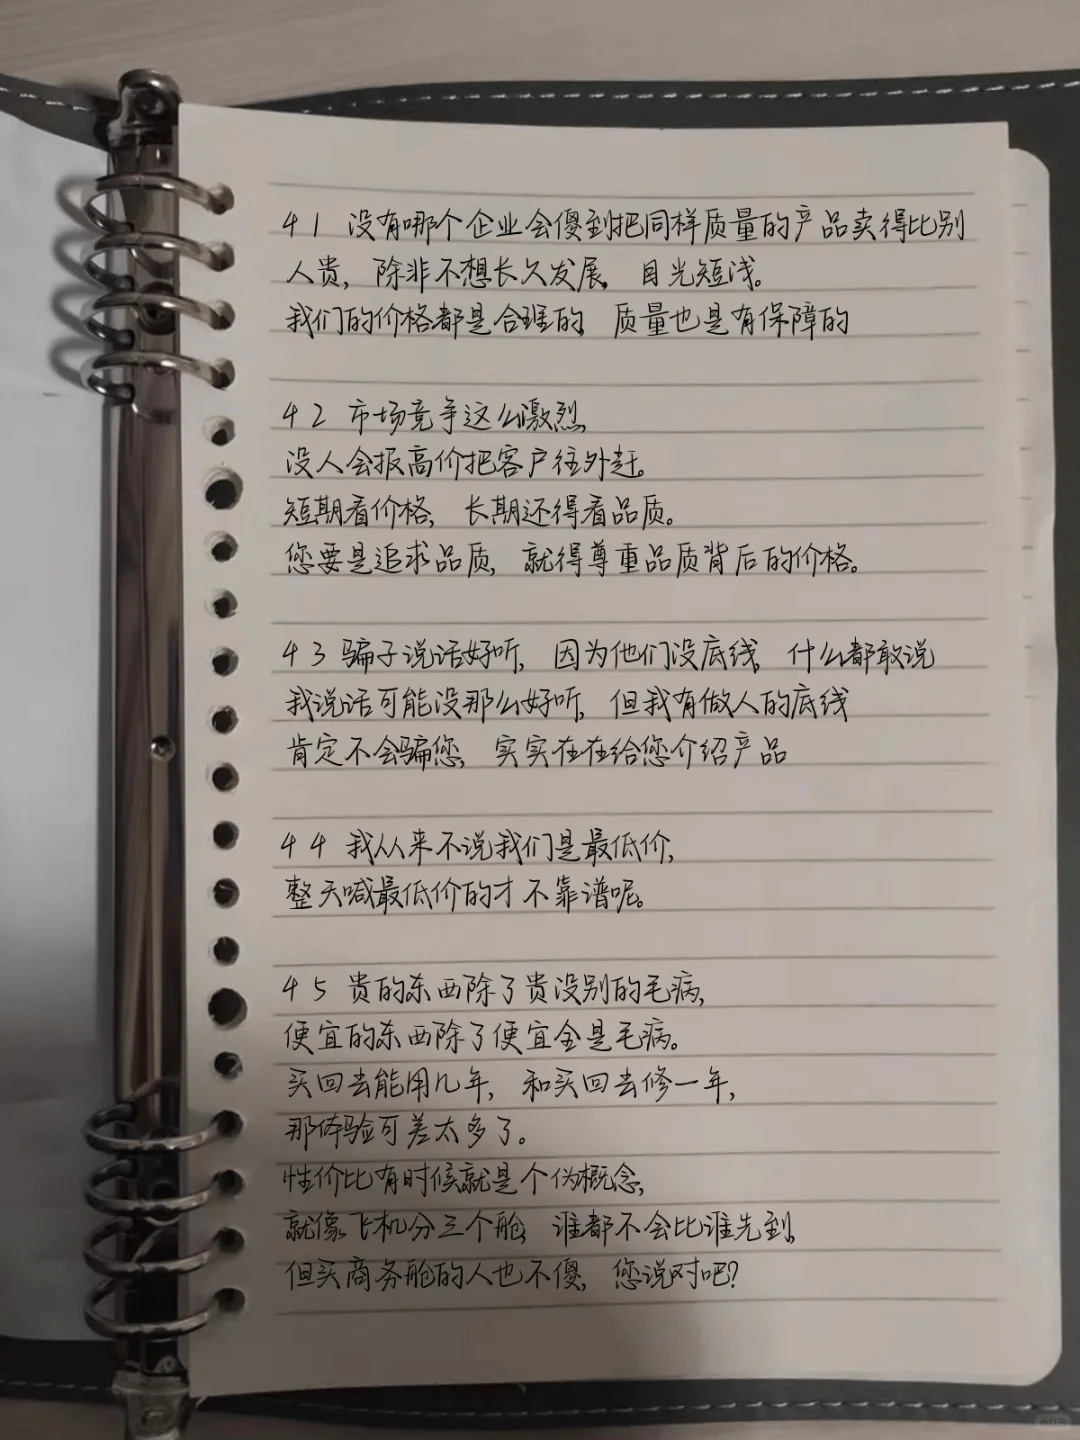 41 没有哪个企业会傻到把同样质量的产品卖得比别
人贵，除非不想长久发展，目光短浅。
我们的价格都是合理的，质量也是有保障的
42 市场竞争这么激烈，
没人会报高价把客户往外赶。
短期看价格，长期还得看品质。
您要是追求品质，就得尊重品质背后的价格。
43 骗子说话好听，因为他们没底线，什么都敢说
我说话可能没那么好听，但我有做人的底线
肯定不会骗您，实实在在给您介绍产品
44 我从来不说我们是最低价，
整天喊最低价的才不靠谱呢。
45 贵的东西除了贵没别的毛病，
便宜的东西除了便宜全是毛病。
买回去能用几年，和买回去修一年，
那体验可差太多了。
性价比有时候就是个伪概念，
就像飞机分三个舱，谁都不会比谁先到，
但买商务舱的人也不傻，您说对吧？